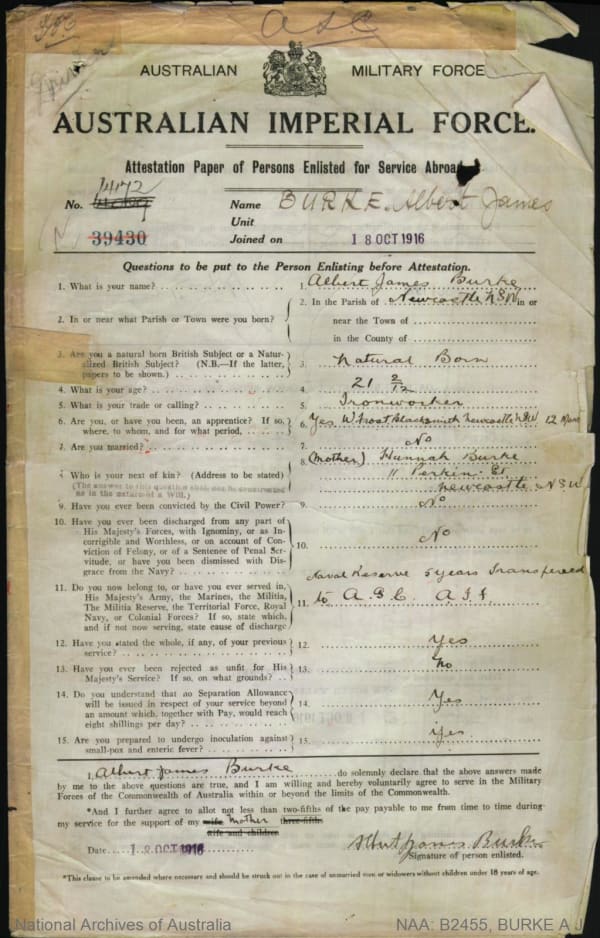 A S C
AUSTRALIAN MILITARY FORCE
AUSTRALIAN IMPERIAL FORCE.
Attestation Paper of Persons Enlisted for Service Abroad
1472
No. Name BURKE. Albert James
Unit
39430 Joined on 18 OCT 1916
Questions to be put to the Person Enlisting before Attestation.
1. What is your name? 1. Albert James Burke
2. In or near what Parish or Town were you born? 2. In the Parish of Newcastle N.S.W. in or
near the Town of
in the County of
3. Are you a natural born British Subject or a Natur-
alized British Subject? (N.B.—If the latter,
papers to be shown.) 3. Natural Born
4. What is your age? 4. 21 2/12
5. What is your trade or calling? 5. Ironworker
6. Are you, or have you been, an apprentice? If so,
where, to whom, and for what period, 6. Yes W Frost Blacksmith Newcastle NSW 12
7. Are you married? 7. No
8. (Mother) Hannah Burke
Who is your next of kin? (Address to be stated) 11 Perkin St
(The answer to this question shall not be construed
as in the nature of a Will.) Newcastle N.S.W
9. Have you ever been convicted by the Civil Power? 9. No
10. Have you ever been discharged from any part of
His Majesty's Forces, with Ignominy, or as In-
corrigible and Worthless, or on account of Con-
viction of Felony, or of a Sentence of Penal Ser-
vitude, or have you been dismissed with Dis-
grace from the Navy? 10. No
11. Do you now belong to, or have you ever served in,
His Majesty's Army, the Marines, the Militia,
The Militia Reserve, the Territorial Force, Royal
Navy, or Colonial Forces? If so, state which,
and if not now serving, state cause of discharge 11. Naval Reserve 5 years Transferred
to A.S.C. A.I.F.
12. Have you stated the whole, if any, of your previous
service? 12. Yes
13. Have you ever been rejected as unfit for His
Majesty's Service? If so, on what grounds? 13. No
14. Do you understand that no Separation Allowance
will be issued in respect of your service beyond
an amount which, together with Pay, would reach
eight shillings per day? 14. Yes
15. Are you prepared to undergo inoculation against
small-pox and enteric fever? 15. Yes
I, Albert James Burke do solemnly declare that the above answers made
by me to the above questions are true, and I am willing and hereby voluntarily agree to serve in the Military
Forces of the Commonwealth of Australia within or beyond the limits of the Commonwealth.
*And I further agree to allot not less than two-fifths of the pay payable to me from time to time during
my service for the support of my wife Mother three-fifths
wife and children
Date 18 OCT 1916 Albert James Burke
Signature of person enlisted.
*This clause to be amended where necessary and should be struck out in the case of unmarried men or widowers without children under 18 years of age.
National Archives of Australia NAA: B2455, BURKE A J